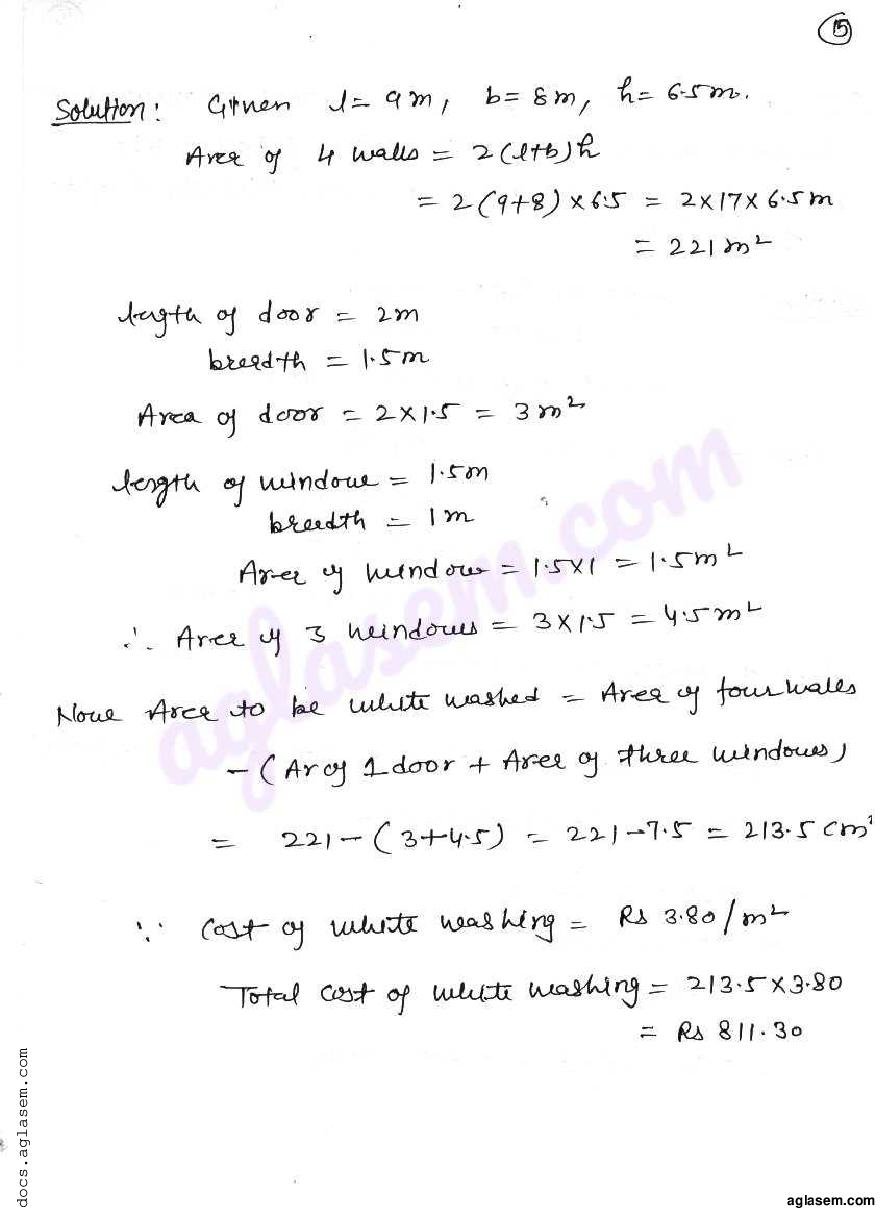 15
Solution: Given l = 9m, b = 8m, h = 6.5m.
Area of 4 walls = 2(l+b)h
= 2(9+8) × 6.5 = 2×17×6.5m
= 221 m²
length of door = 2m
breadth = 1.5m
Area of door = 2×1.5 = 3m²
length of window = 1.5m
breadth = 1m
Area of window = 1.5×1 = 1.5m²
∴ Area of 3 windows = 3×1.5 = 4.5m²
Now Area to be white washed = Area of four walls
- (Ar of 1 door + Area of three windows)
= 221 - (3+4.5) = 221 - 7.5 = 213.5 cm²
∵ Cost of white washing = Rs 3.80/m²
Total cost of white washing = 213.5×3.80
= Rs 811.30
aglasem.com
docs.aglasem.com
aglasem.com